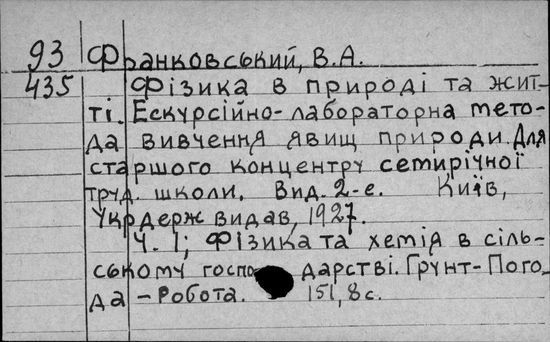 93 Франковський, В.А.
435 Фізика в природі та жит-
ті. Екскурсійно-лабораторна мето-
да вивчення явищ природи. Для
старшого концентру семирічної
труд. школи. Вид. 2-е. Київ,
Укрдержвидав, 1927.
Ч. 1; Фізика та хемія в сіль-
ському госпо дарстві. Грунт-Пого
да - Робота. 151, 8 с.